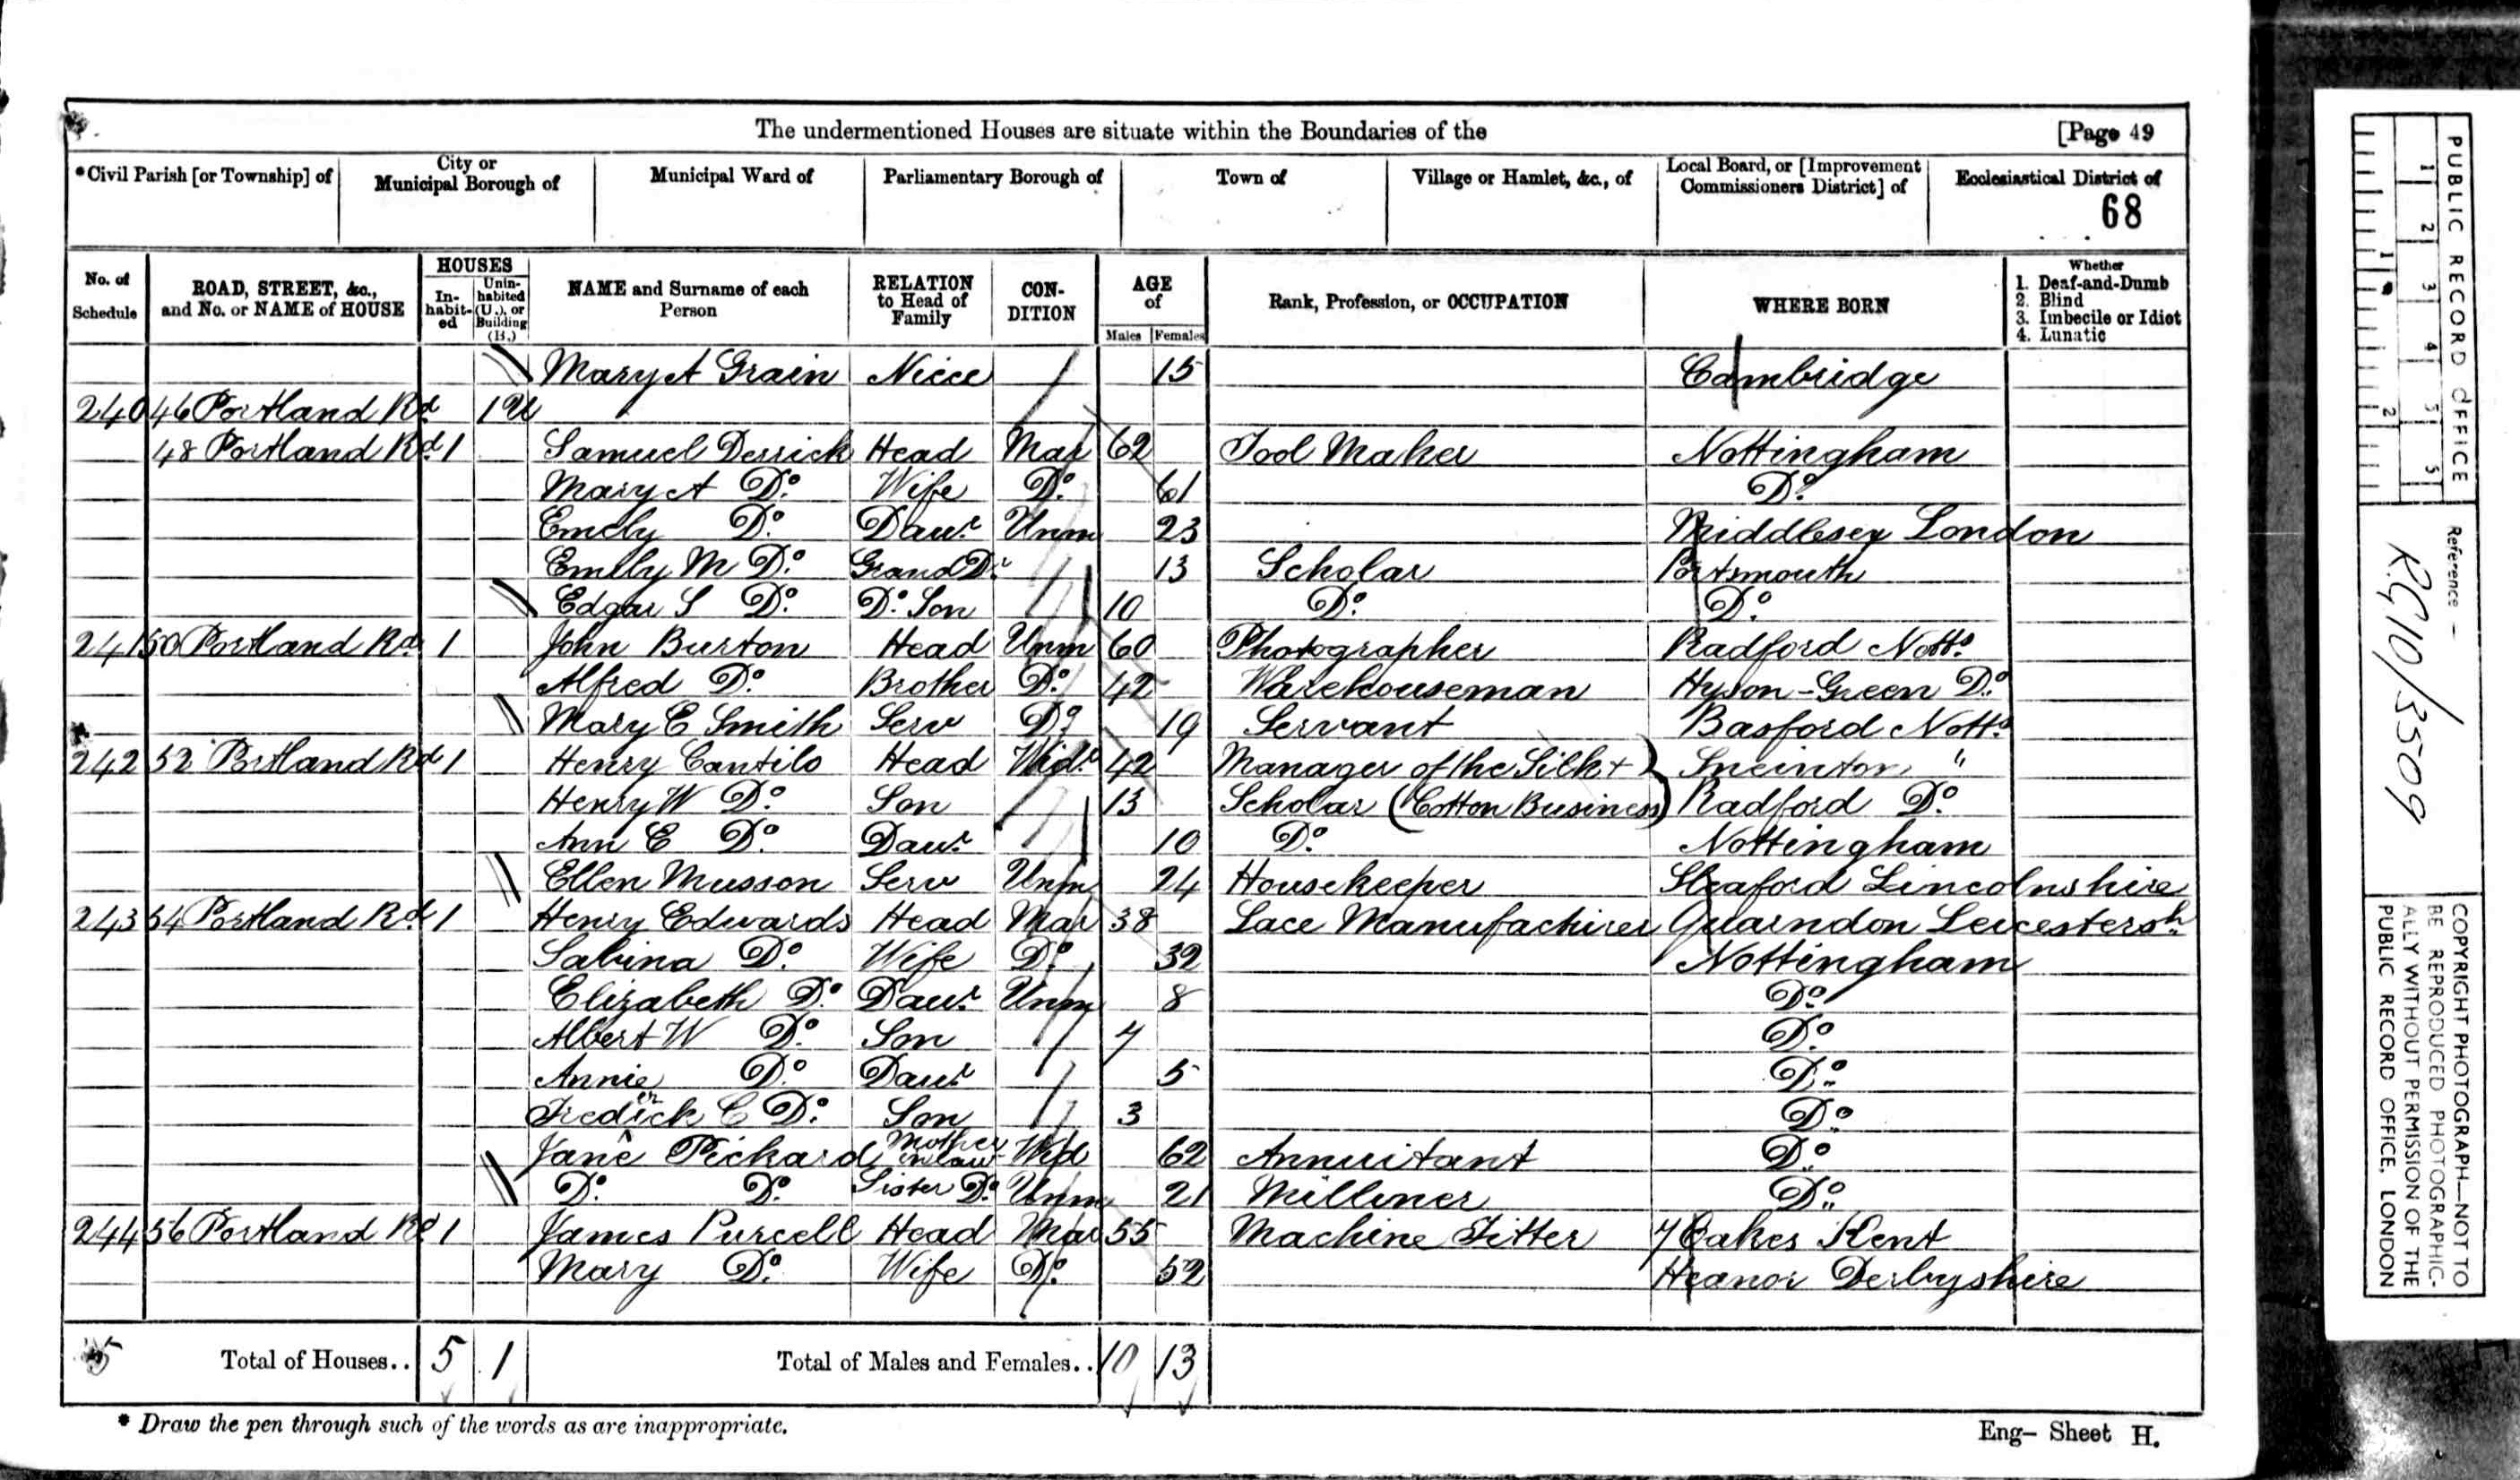 The undermentioned Houses are situate within the Boundaries of the [Page 49
*Civil Parish [or Township] of
City or Municipal Borough of
Municipal Ward of
Parliamentary Borough of
Town of
Village or Hamlet, &c., of
Local Board, or [Improvement Commissioners District] of
Ecclesiastical District of
68
No. of Schedule
ROAD, STREET, &c., and No. or NAME of HOUSE
HOUSES
In-habit-ed
Unin-habited (U.), or Building (B.)
NAME and Surname of each Person
RELATION to Head of Family
CON-DITION
AGE of
Males Females
Rank, Profession, or OCCUPATION
WHERE BORN
Whether
1. Deaf-and-Dumb
2. Blind
3. Imbecile or Idiot
4. Lunatic
Mary A Grain Niece 15 Cambridge
240 46 Portland Rd 1 U
48 Portland Rd 1 Samuel Derrick Head Mar 62 Tool Maker Nottingham
Mary A Do. Wife Do. 61 Do.
Emely Do. Daur. Unm 23 Middlesex London
Emily M Do. Grand Dr. 13 Scholar Portsmouth
Edgar S Do. Do. Son 10 Do. Do.
241 50 Portland Rd. 1 John Burton Head Unm 60 Photographer Radford Notts.
Alfred Do. Brother Do. 42 Warehouseman Hyson-Green Do.
Mary E Smith Serv Do. 19 Servant Basford Notts.
242 52 Portland Rd 1 Henry Cantilo Head Widr. 42 Manager of the Silk + } Sneinton "
Henry W Do. Son 13 Scholar (Cotton Business) Radford Do.
Ann E Do. Daur. 10 Do. Nottingham
Ellen Musson Serv Unm 24 Housekeeper Sleaford Lincolnshire
243 54 Portland Rd. 1 Henry Edwards Head Mar 38 Lace Manufacturer Quarndon Leicestersh.
Sabina Do. Wife Do. 32 Nottingham
Elizabeth Do. Daur. Unm 8 Do.
Albert W Do. Son 7 Do.
Annie Do. Daur. 5 Do.
Frederick C Do. Son 3 Do.
Jane Pickard Mother in law Wid 62 Annuitant Do.
Do. Do. Sister Do. Unm 21 Milliner Do.
244 56 Portland Rd. 1 James Purcell Head Mar 55 Machine Fitter 7 Oakes Kent
Mary Do. Wife Do. 52 Heanor Derbyshire
5 Total of Houses.. 5 1 Total of Males and Females.. 10 13
* Draw the pen through such of the words as are inappropriate.
Eng- Sheet H.
PUBLIC RECORD OFFICE
1 2 3 4 5
1 2
Reference –
RG10/3509
COPYRIGHT PHOTOGRAPH—NOT TO
BE REPRODUCED PHOTOGRAPHIC-
ALLY WITHOUT PERMISSION OF THE
PUBLIC RECORD OFFICE, LONDON